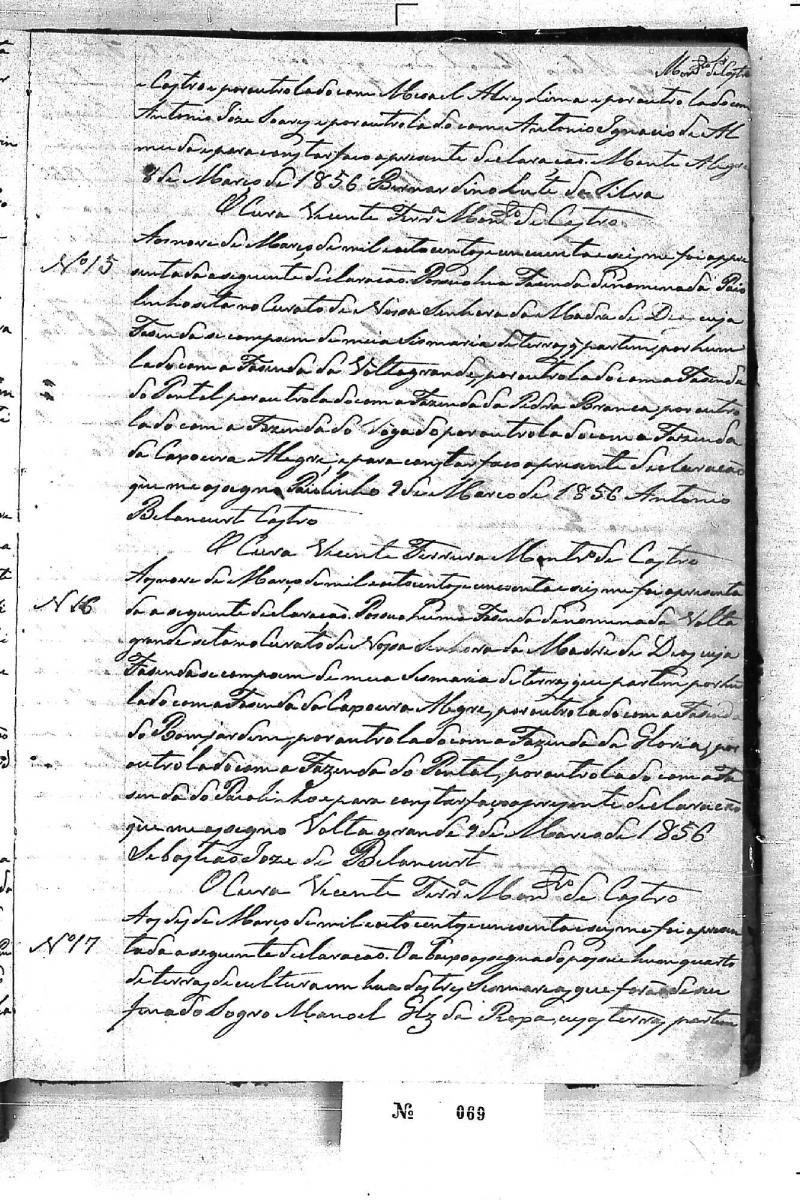 Montrº de Castro
e Castro e por outro lado com Misael Alvez Lima e por outro lado com
Antonio Joze Soarez e por outro lado com Antonio Ignacio de Al
meida e para constar faço a presente declaração. Monte Alegre
8 de Março de 1856 Bernardino da Silva
O Cura Vicente Ferrª Montrº de Castro
Nº 15
Aos nove de Março de mil oito centos e cincoenta e seis me foi apre
sentada a seguinte declaração. Possuo hua Fazenda denominada Paio
linho sita no Curato de Nossa Senhora da Madre de Deos cuja
Fasenda se compoem de meia Sesmaria de terras q partem por hum
lado com a Fasenda da Voltagrande, por outro lado com a Fasenda
do Pontal por outro lado com a Fazenda da Pedra Branca, por outro
lado com a Fazenda do Vigado por outro lado com a Fazenda
da Capoeira Alegre, e para constar faço a presente declaração
que me assigno Paiolinho 9 de Março de 1856 Antonio
Betancurt Castro
O Cura Vicente Ferreira Montrº de Castro
Nº 16
Aos nove de Março de mil oito centos e cincoenta e seis me foi apresenta
da a seguinte declaração. Possuo huma Fazenda denominada Volta
grande sita no Curato de Nossa Senhora da Madre de Deos cuja
Fasenda se compoem de meia Sesmaria de terras que partem por hu
lado com a Fasenda da Capoeira Alegre, por outro lado com a Fasenda
do Bomjardim, por outro lado com a Fazenda da Gloria, por
outro lado com a Fazenda do Pontal, por outro lado com a Fa
senda do Paiolinho e para constar faço a presente declaração
que me assigno Volta grande 9 de Março de 1856
Sebastião Joze de Betancurt
O Cura Vicente Ferrª Montrº de Castro
Nº 17
Aos dez de Março de mil oito centos e cincoenta e seis me foi apresen
tada a seguinte declaração. O abaixo assignado possue hum quarto
de terras de cultura em hua das tres Sesmarias que forão de seu
finado Sogro Manoel da Ropa, cujas terras partem
Nº 069